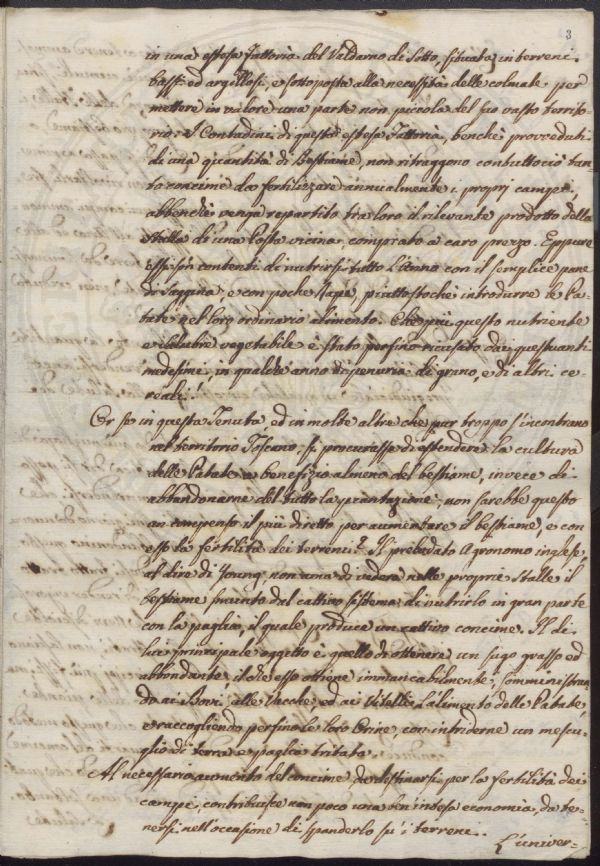 3
in una estesa Fattoria del Valdarno di Sotto, situata in terreni
bassi ed argillosi, e sottoposta alla necessità delle colmate per
mettere in valore una parte non piccola del suo vasto territo-
rio: I Contadini di questa estesa Fattoria, benchè provveduti
di una quantità di Bestiame, non ritraggono contuttociò tan
to concime da fertilizzare annualmente i proprj campi,
abbenchè venga repartito tra loro il rilevante prodotto della
Stalla di una Posta vicina, comprato a caro prezzo. Eppure
essi son contenti di nutrirsi tutto l'Anno con il semplice pane
di Saggina, e con poche Rape, piuttostochè introdurre le Pa-
tate nel loro ordinario alimento. Che più, questo nutriente
e salubre vegetabile è stato perfino ricusato dai questuanti
medesimi in qualche anno di penuria di grano, e di altri ce-
reali!
Or se in questa Tenuta, ed in molte altre che pur troppo s'incontrano
nel territorio Toscano, si procurasse di estendere la cultura
delle Patate a benefizio almeno del bestiame, invece di
abbandonarne del tutto la piantazione, non sarebbe questo
un compenso il più diretto per aumentare il bestiame, e con
esso la fertilità dei terreni? Il prelodato Agronomo inglese,
al dire di Young, non ama di vedere nelle proprie Stalle il
bestiame smunto dal cattivo sistema di nutrirlo in gran parte
con la paglia, il quale produce un cattivo concime. Il di
lui principale oggetto è quello di ottenere un sugo grasso ed
abbondante, il che esso ottiene immancabilmente, somministran
do ai Bovi, alle Vacche, ed ai Vitelli l'alimento delle Patate,
e raccogliendo perfino le loro Orine, con intriderne un mescu-
glio di terra e paglia tritata.
Al necessario aumento del concime da destinarsi per la fertilità dei
campi, contribuisce non poco una ben intesa economia, da te-
nersi nell'occasione di spanderlo su' i terreni.
L'univer-